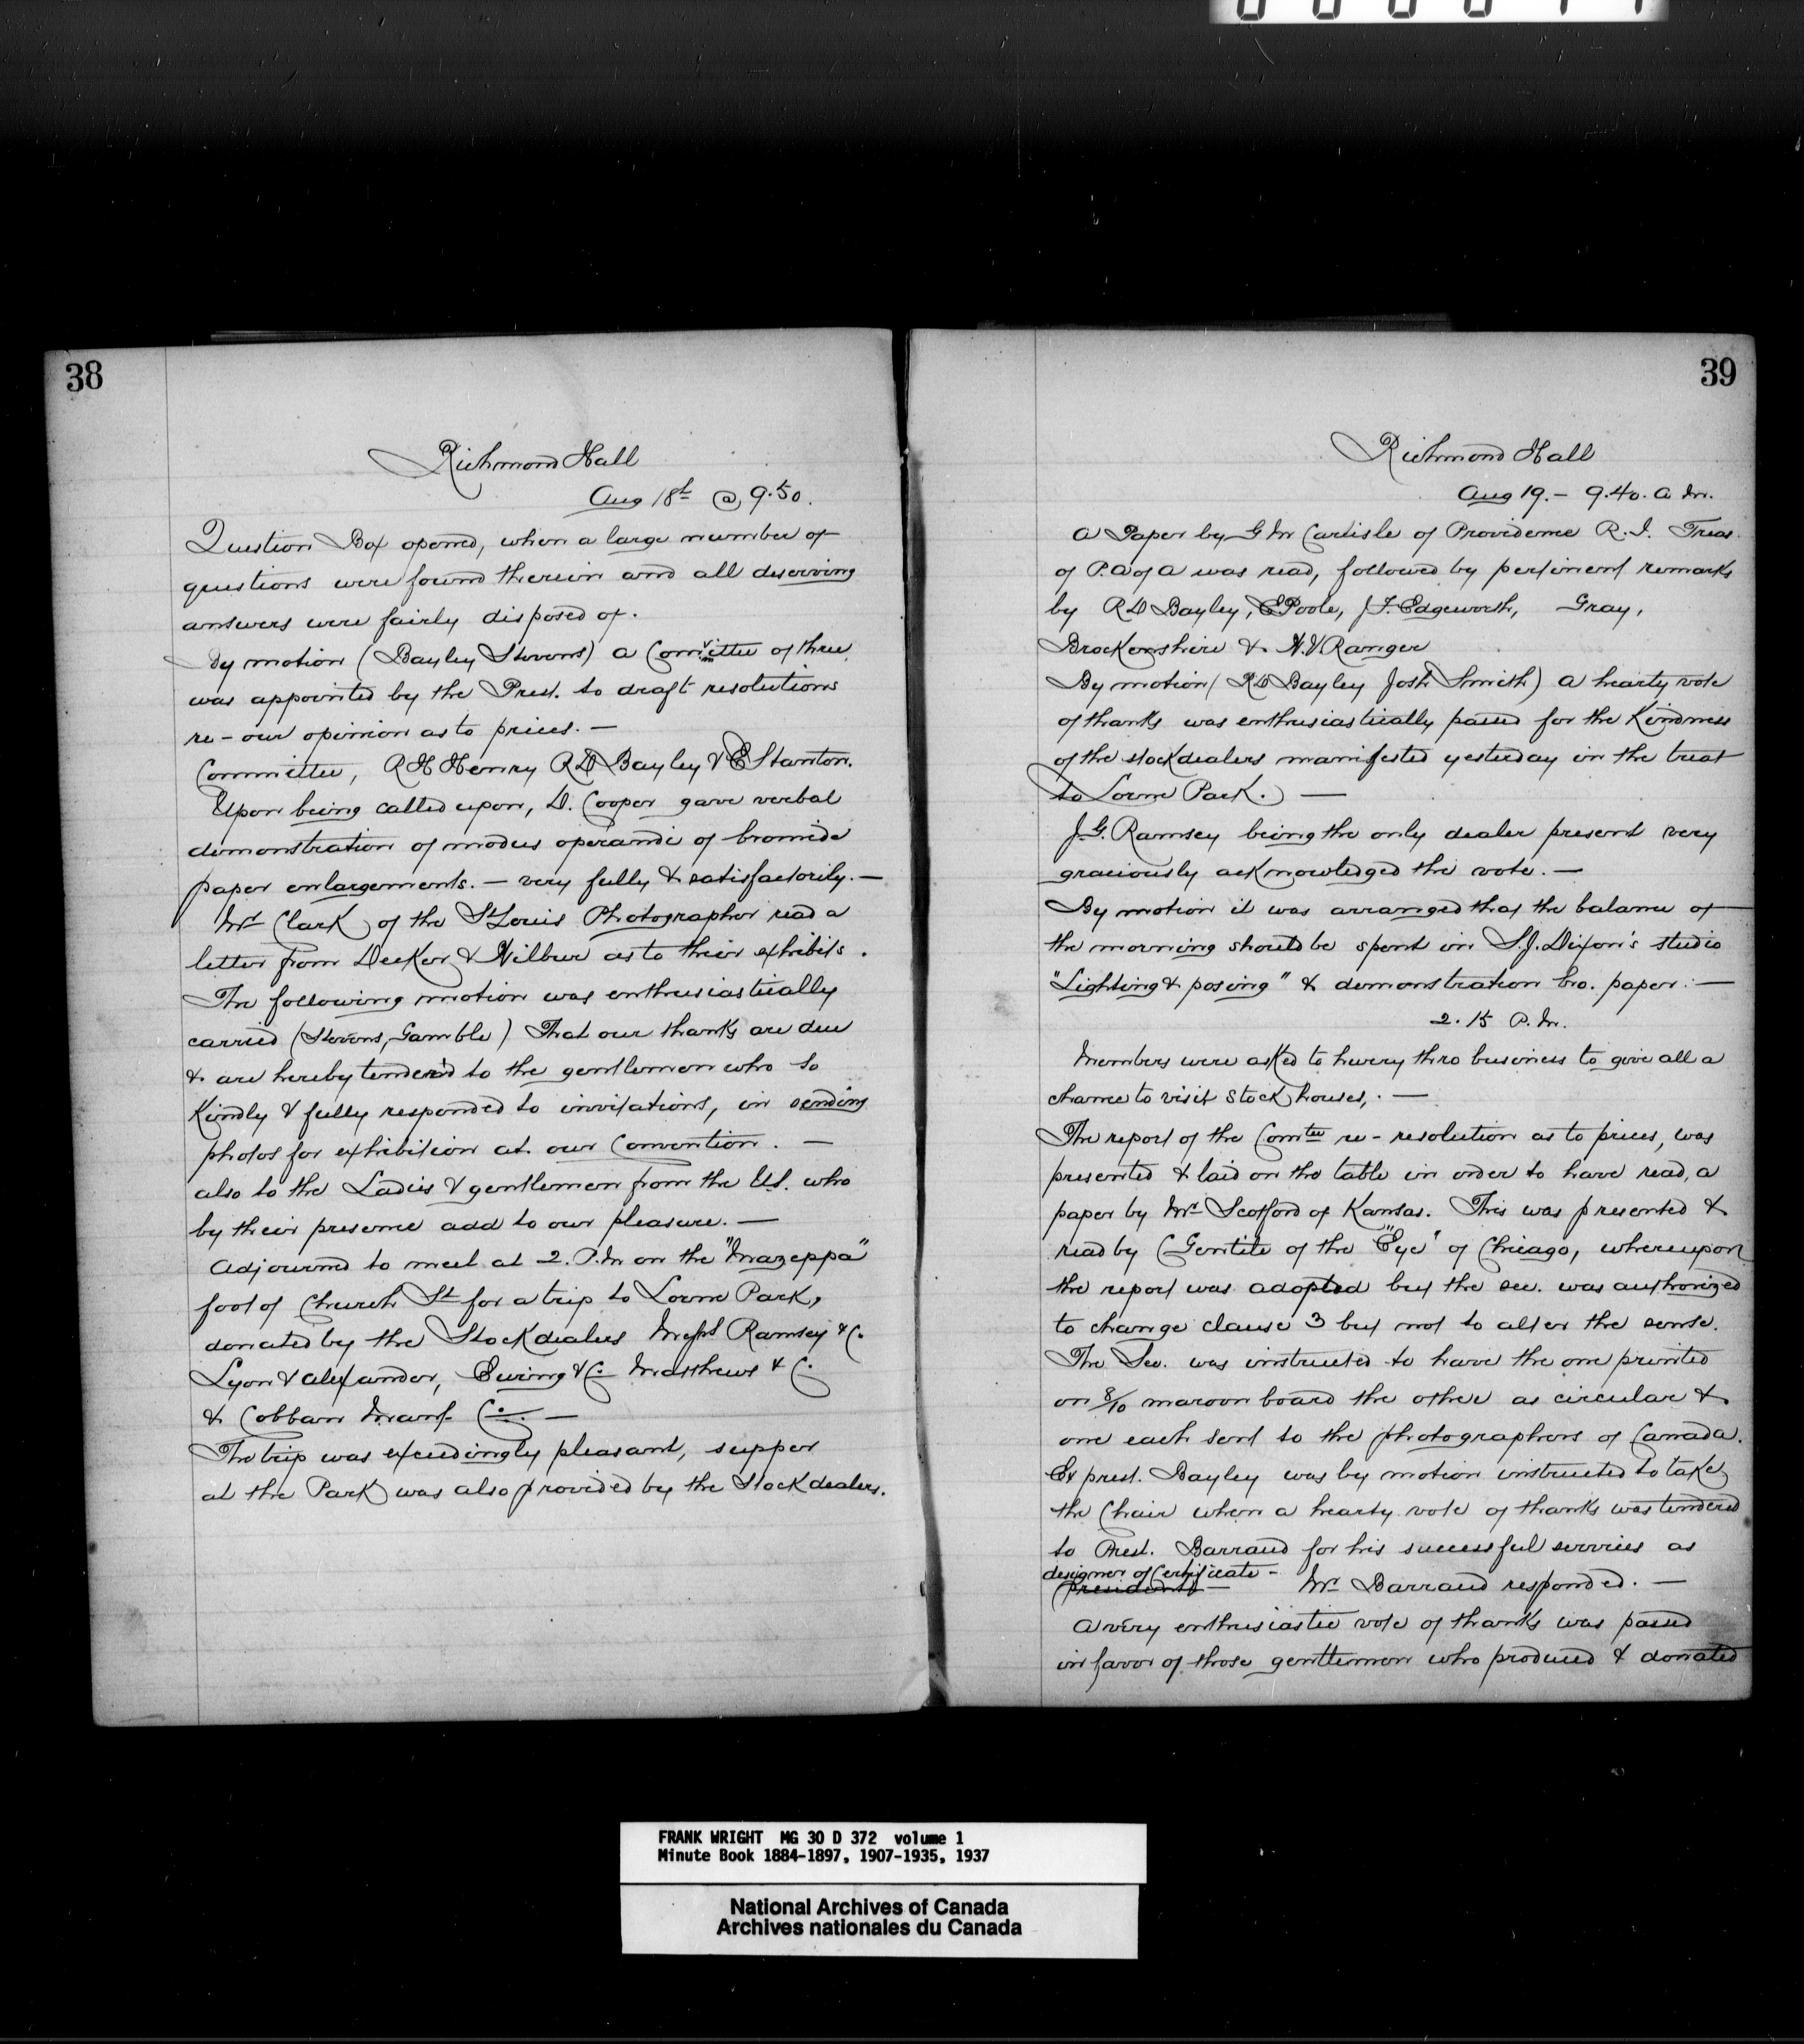 38
Richmond Hall
Aug 18th @ 9.50.
Question Box opened, when a large number of
questions were found therein and all deserving
answers were fairly disposed of.
By motion (Bayley Stevens) a Committee of three
was appointed by the Prest. to draft resolutions
re - our opinion as to prices. —
Committee, R H Henry R D Bayley & E Stanton.
Upon being called upon, D. Cooper gave verbal
demonstration of modus operandi of bromide
paper enlargements. — very fully & satisfactorily. —
Mr Clark of the St Louis Photographer read a
letter from Decker & Wilbur as to their exhibits.
The following motion was enthusiastically
carried (Stevens, Gamble) That our thanks are due
& are hereby tendered to the gentlemen who so
Kindly & fully responded to invitations, in sending
photos for exhibition at our Convention. —
also to the Ladies & gentlemen from the U.S. who
by their presence add to our pleasure. —
Adjourned to meet at 2. P.M on the "Mazeppa"
foot of Church St for a trip to Lorne Park,
donated by the Stockdealers Messrs Ramsey & Co.
Lyon & Alexander, Ewing & Co. Matthews & Co.
& Cobban Manf. Co. —
The trip was exceedingly pleasant, supper
at the Park was also provided by the Stockdealers.
39
Richmond Hall
Aug 19. — 9.40. a M.
A Paper by G M Carlisle of Providence R.I. Treas.
of P. A of A was read, followed by pertinent remarks
by R D Bayley, E Poole, J. F. Edgeworth, Gray,
Brockenshire & H. V. Ranger
By motion (R D Bayley Josh Smith) a hearty vote
of thanks was enthusiastically passed for the Kindness
of the stockdealers manifested yesterday in the treat
to Lorne Park. —
J. G. Ramsey being the only dealer present very
graciously acknowledged the vote. —
By motion it was arranged that the balance of
the morning should be spent in S. J. Dixon's studio
"Lighting & posing" & demonstration bro. paper: —
2.15 P.M.
Members were asked to hurry thro business to give all a
chance to visit Stock houses,. —
The report of the Comtee re - resolution as to prices, was
presented & laid on the table in order to have read, a
paper by Mr Scotford of Kansas. This was presented &
read by C Gentile of the "Eye" of Chicago, whereupon
the report was adopted but the sec. was authorized
to change clause 3 but not to alter the sense.
The Sec. was instructed to have the one printed
on 8/10 maroon board the other as circular &
one each sent to the photographers of Canada.
Ex prest. Bayley was by motion instructed to take
the Chair when a hearty vote of thanks was tendered
to Prest. Barraud for his successful services as
designer of Certificate -
President — Mr Barraud responded. —
A very enthusiastic vote of thanks was passed
in favor of those gentlemen who produced & donated
FRANK WRIGHT MG 30 D 372 volume 1
Minute Book 1884-1897, 1907-1935, 1937
National Archives of Canada
Archives nationales du Canada